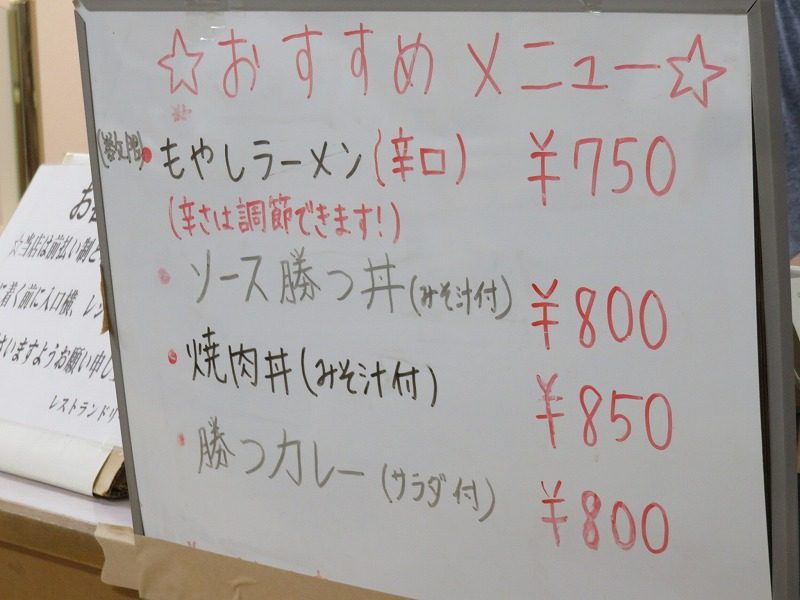 ☆おすすめメニュー☆
もやしラーメン(辛口) ¥750
(辛さは調節できます!)
ソース勝つ丼(みそ汁付) ¥800
焼肉丼(みそ汁付) ¥850
勝つカレー(サラダ付) ¥800
☆当店は前払い制と
に着く前に入口横、レジ
いますようお願い申し
レストランドリ